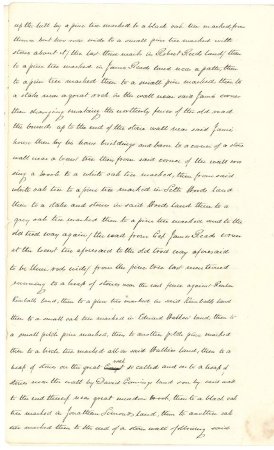 up the hill by a pine tree marked to a black oak tree marked from
thence but two rods wide to a small pine tree marked with
stones about it the last three marks in Robert Reeds land then
to a pine tree marked in James Reeds land near a path, then
to a pine tree marked then to a small pine marked, then to
a stake near a great rock in the wall near said James corner
then changing making the northerly fence of the old road
the bounds up to the end of the stone wall near said James
house then by his house buildings and barn to a corner of a stone
wall near a tree then from said corner of the wall run
ning a bound to a white oak tree marked, then from said
white oak tree to a pine tree marked in Seth Woods land
then to a stake and stones in said Woods land then to a
grey oak tree marked then to a pine tree marked and to the
old trod way again, the road from Capt James Reeds corner
at the tree aforesaid to the old trod way aforesaid
to be three rods wide, from the pine tree last mentioned
running to a heap of stones near the east fence against Reuben
Kimball land, then to a pine tree marked in said Kimball land
then to a small oak tree marked in Edward Walker land then to
a small pitch pine marked, then to another pitch pine marked
then to a birch tree marked all in said Walker land, then to a
heap of stones on the great rock so called and on to a heap of
stones near the wall by David Cumings land run by said wall
to the end thereof near great meadow brook, then to a black oak
tree marked in Jonathan Simonds land, then to another oak
tree marked then to the end of a stone wall following said